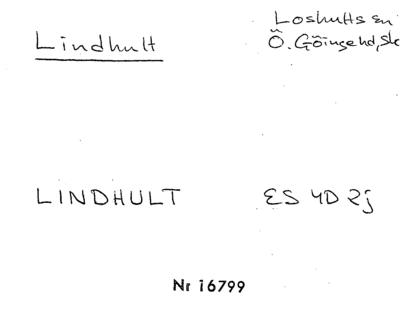 Lindhult
Loshults sn
Ö. Göinge hd, Sk
LINDHULT
ES 4D 2j
Nr 16799